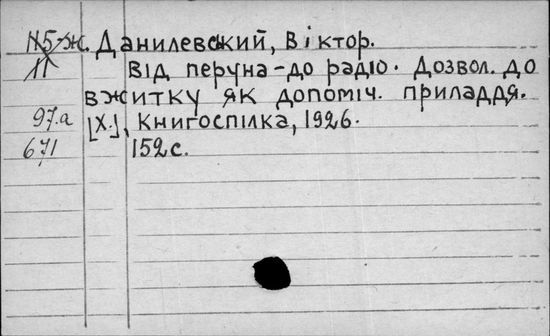 N5-ж. Данилевський, Віктор.
11 Від перуна - до радіо. Дозвол. до
вжитку як допоміч. приладдя.
97.а [Х.], Книгоспілка, 1926.
671 152 с.